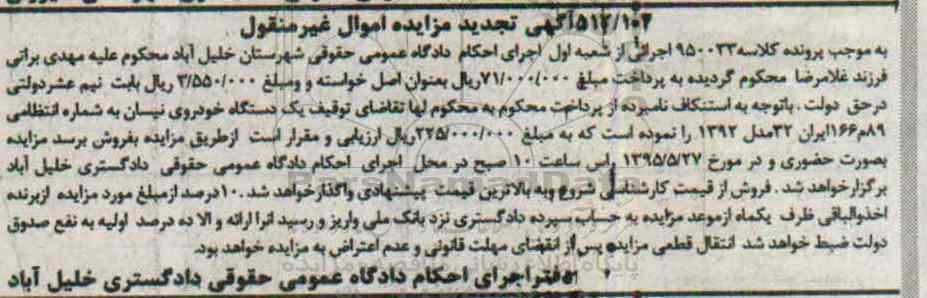 ۵۱۲/۱۰۲آگهی تجدید مزایده اموال غیرمنقول
به موجب پرونده کلاسه۹۵۰۰۳۳ اجرائی از شعبه اول اجرای احکام دادگاه عمومی حقوقی شهرستان خلیل آباد محکوم علیه مهدی براتی
فرزند غلامرضا محکوم گردیده به پرداخت مبلغ ۷۱/۰۰۰/۰۰۰ریال بعنوان اصل خواسته و مبلغ ۳/۵۵۰/۰۰۰ ریال بابت نیم عشردولتی
درحق دولت . باتوجه به استنکاف نامبرده از پرداخت محکوم به محکوم لها تقاضای توقیف یک دستگاه خودروی نیسان به شماره انتظامی
۸۹م۱۶۶ایران ۳۲مدل ۱۳۹۲ را نموده است که به مبلغ ۲۲۵/۰۰۰/۰۰۰ریال ارزیابی و مقرار است ازطریق مزایده بفروش برسد مزایده
بصورت حضوری و در مورخ ۱۳۹۵/۵/۲۷ راس ساعت ۱۰ صبح در محل اجرای احکام دادگاه عمومی حقوقی دادگستری خلیل آباد
برگزارخواهد شد . فروش از قیمت کارشناسی شروع وبه بالاترین قیمت پیشنهادی واگذارخواهد شد . ۱۰درصد ازمبلغ مورد مزایده ازبرنده
اخذوالباقی ظرف یکماه ازموعد مزایده به حساب سپرده دادگستری نزد بانک ملی واریز و رسید انرا ارائه و الا ده درصد اولیه به نفع صندوق
دولت ضبط خواهد شد انتقال قطعی مزایده پس از انقضای مهلت قانونی و عدم اعتراض به مزایده خواهد بود.
دفتر اجرای احکام دادگاه عمومی حقوقی دادگستری خلیل آباد
ParsNamadData